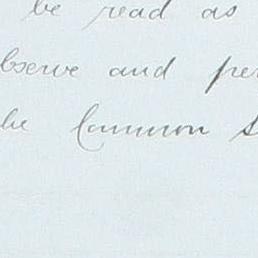 be read as
bserve and per
he Common S